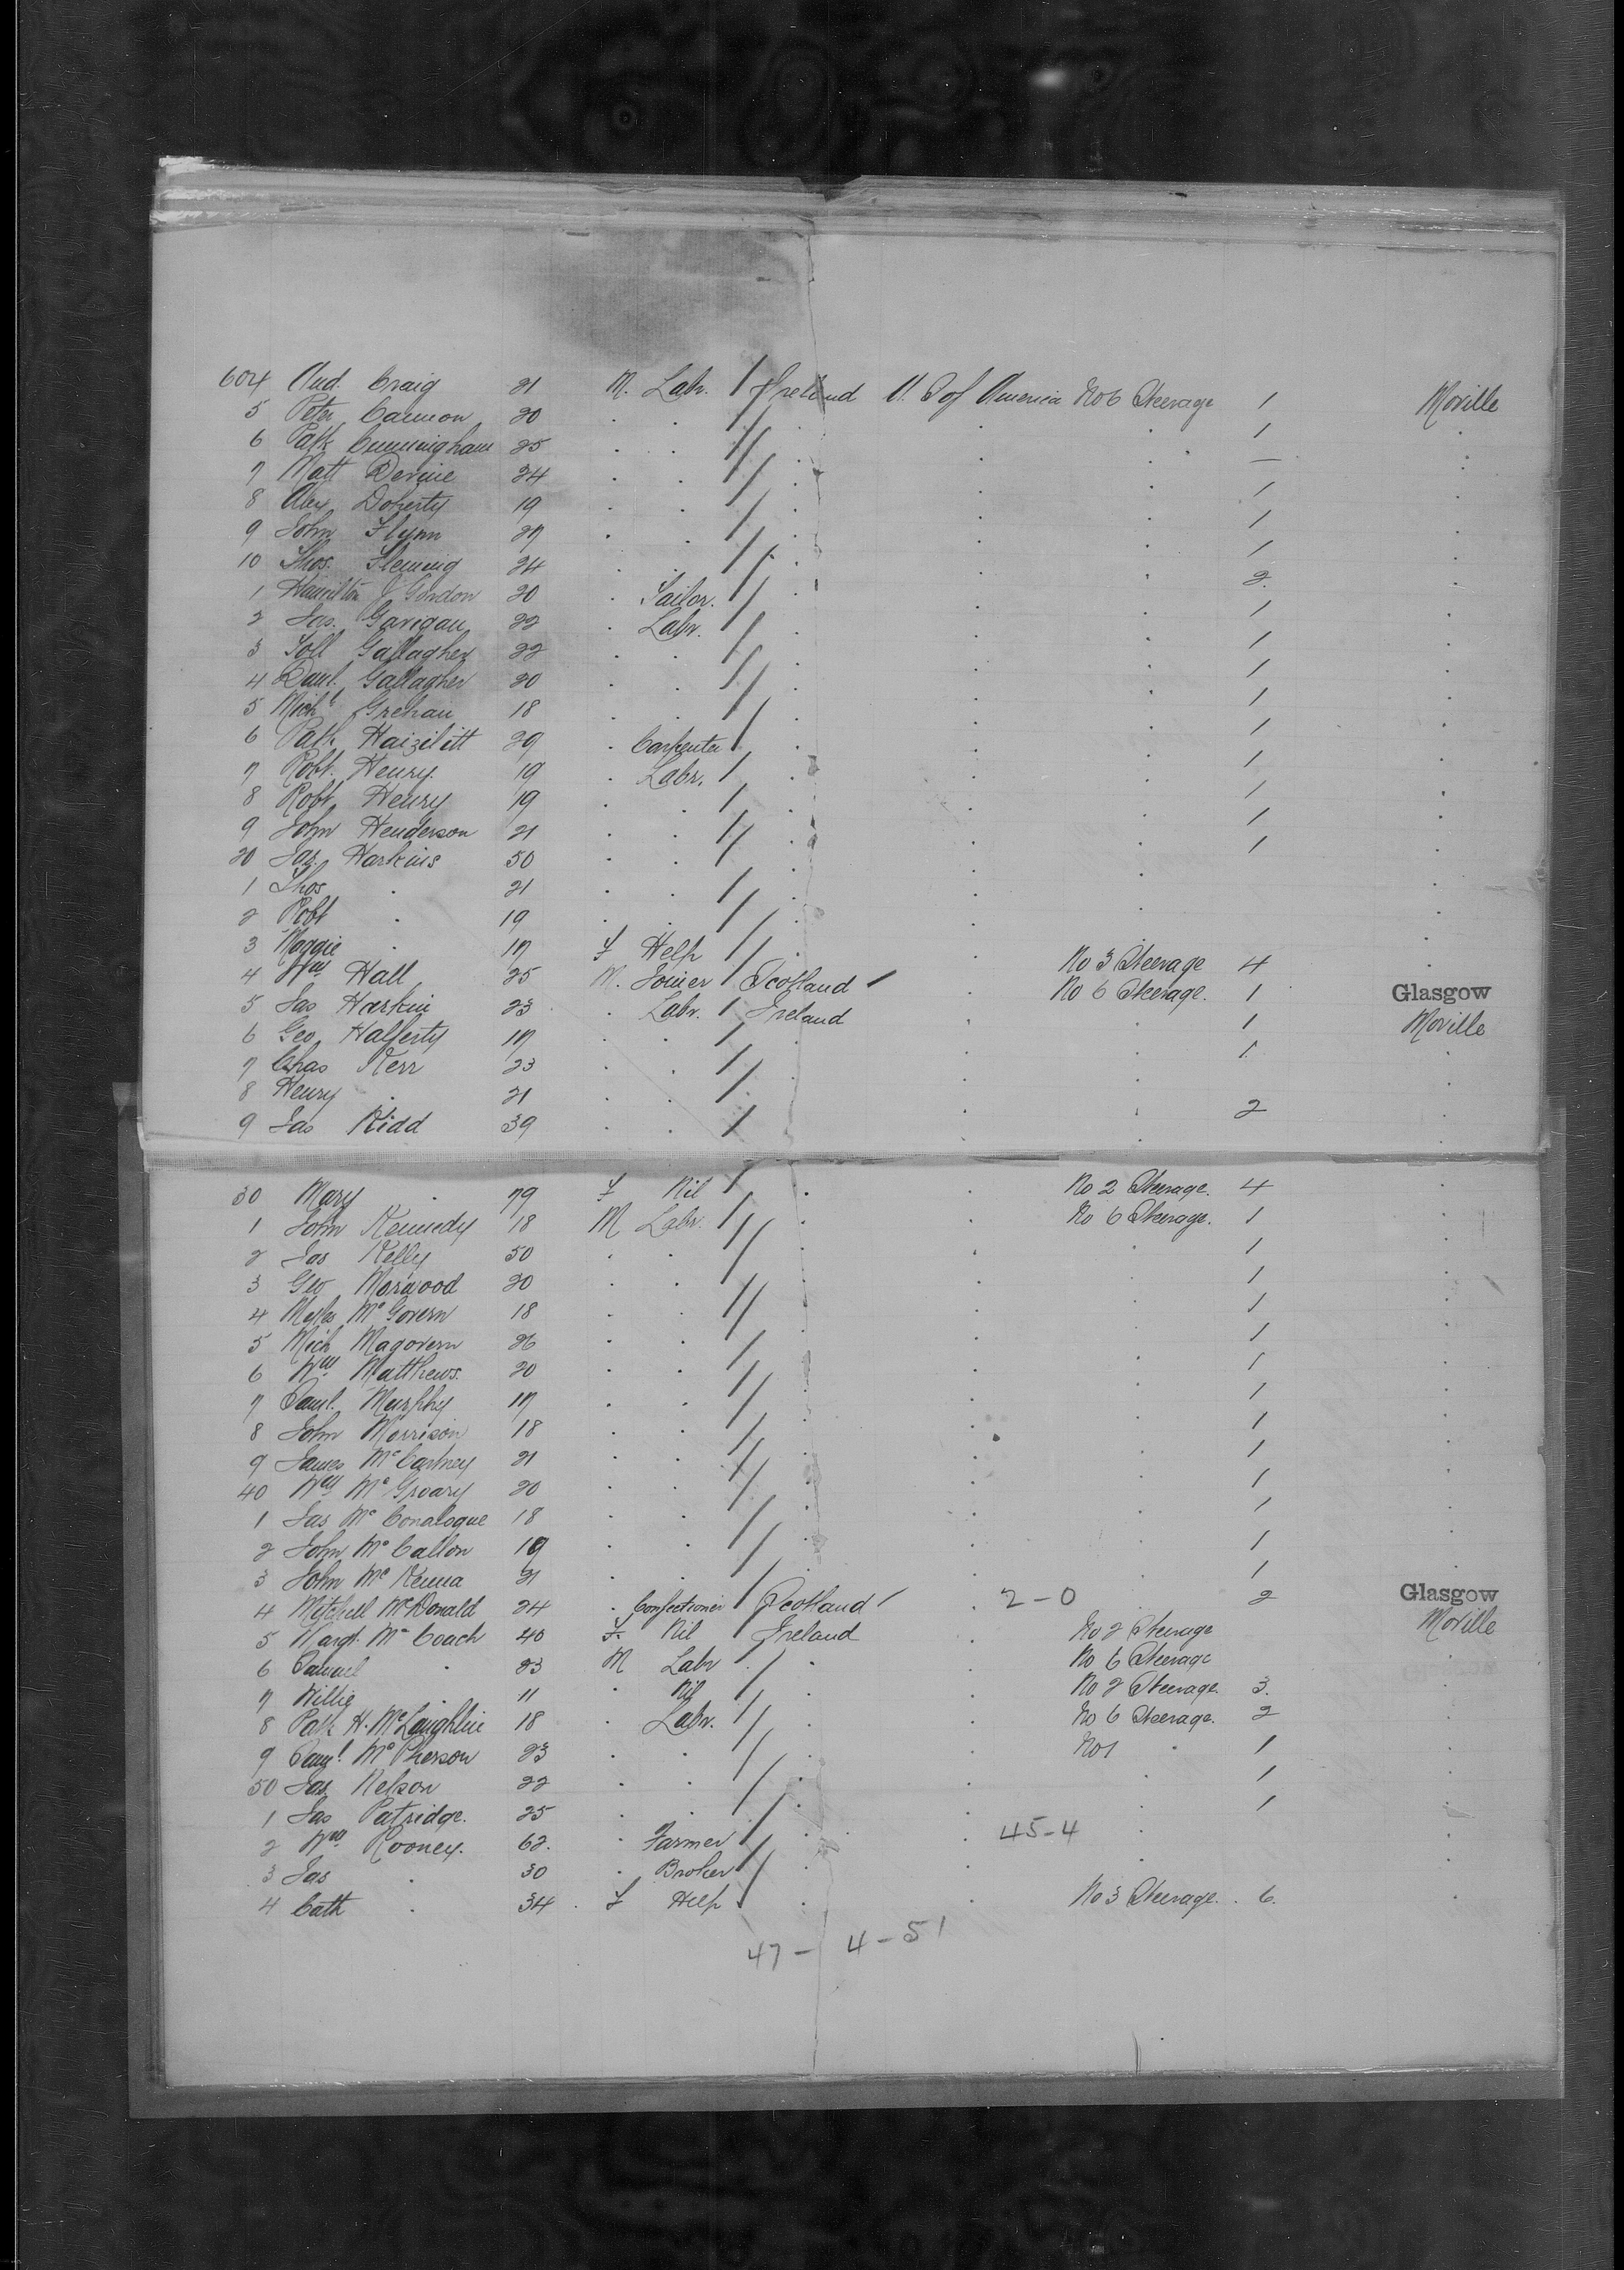 604 And. Craig 21 M. Labr. / Ireland U. S of America No 6 Steerage 1 Moville
5 Peter Cannon 20 . . / . . . 1 .
6 Patk Cunningham 25 . . / . . . — .
7 Matt Devine 24 . . / . . . 1 .
8 Alex Doherty 19 . . / . . . 1 .
9 John Flynn 27 . . / . . . 1 .
10 Thos. Fleming 24 . . / . . . 2 .
1 Hamilton J Gordon 20 . Tailor. / . . . 1 .
2 Jas. Garigan 22 . Labr. / . . . 1 .
3 Toll Gallagher 22 . . / . . . 1 .
4 Danl. Gallagher 20 . . / . . . 1 .
5 Michl Grehan 18 . . / . . . 1 .
6 Patk Haizilitt 29 . Carpenter / . . . 1 .
7 Robt. Henry. 19 . Labr. / . . . 1 .
8 Robt. Henry 19 . . / . . . 1 .
9 John Henderson 21 . . / . . . 1 .
20 Jas. Harkins 50 . . / . . .
1 Thos . 21 . . / . . .
2 Robt . 19 . . / . . .
3 Maggie . 17 F Help / . . No 3 Steerage 4 .
4 Wm Hall 25 M. Joiner / Scotland / . No 6 Steerage. 1 Glasgow
5 Jas Harkin 23 . Labr. / Ireland . . 1 Moville
6 Geo. Hafferty 17 . . / . . . 1 .
7 Chas Kerr 23 . . / . . .
8 Henry . 21 . . / . . . 2 .
9 Jas Kidd 39 . . / . . .
30 Mary . 79 F Nil / . . No 2 Steerage. 4 .
1 John Kennedy 18 M Labr. / . . No 6 Steerage. 1 .
2 Jas Kelly 50 . . / . . . 1 .
3 Geo Morwood 20 . . / . . . 1 .
4 Myles McGovern 18 . . / . . . 1 .
5 Mich Magovern 26 . . / . . . 1 .
6 Wm Matthews. 20 . . / . . . 1 .
7 Saml. Murphy 17 . . / . . . 1 .
8 John Morrison 18 . . / . . . 1 .
9 James McCartney 21 . . / . . . 1 .
40 Wm McGroary 20 . . / . . . 1 .
1 Jas McConalogue 18 . . / . . . 1 .
2 John McCallon 19 . . / . . . 1 .
3 John McKenna 21 . . / . . . 1 .
4 Mitchell McDonald 24 . Confectioner / Scotland / . 2-0 2 Glasgow
5 Margt. McCoach 40 F. Nil / Ireland . No 2 Steerage Moville
6 Samuel . 23 M Labr / . . No 6 Steerage .
7 Willie . 11 . Nil / . . No 2 Steerage. 3. .
8 Patk H. McLaughlin 18 . Labr. / . . No 6 Steerage. 2 .
9 Saml. McPherson 23 . . / . . No 1 . 1 .
50 Jas Nelson 22 . . / . . . 1 .
1 Jas Patridge. 25 . . / . . . 1 .
2 Wm Rooney. 62. . Farmer / . . 45-4 . .
3 Jas . 30 . Broker / . . . .
4 Cath . 34 . F Help / . . No 3 Steerage. . 6. .
47 - 4 - 51